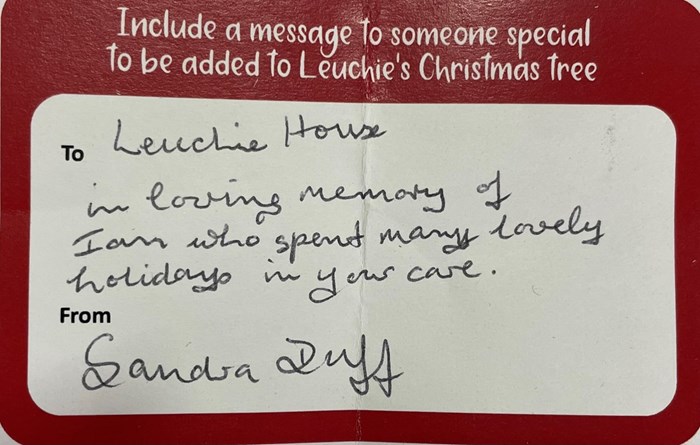 Include a message to someone special
to be added to Leuchie's Christmas tree
To Leuchie House
in loving memory of
Ian who spent many lovely
holidays in your care.
From
Sandra Duff